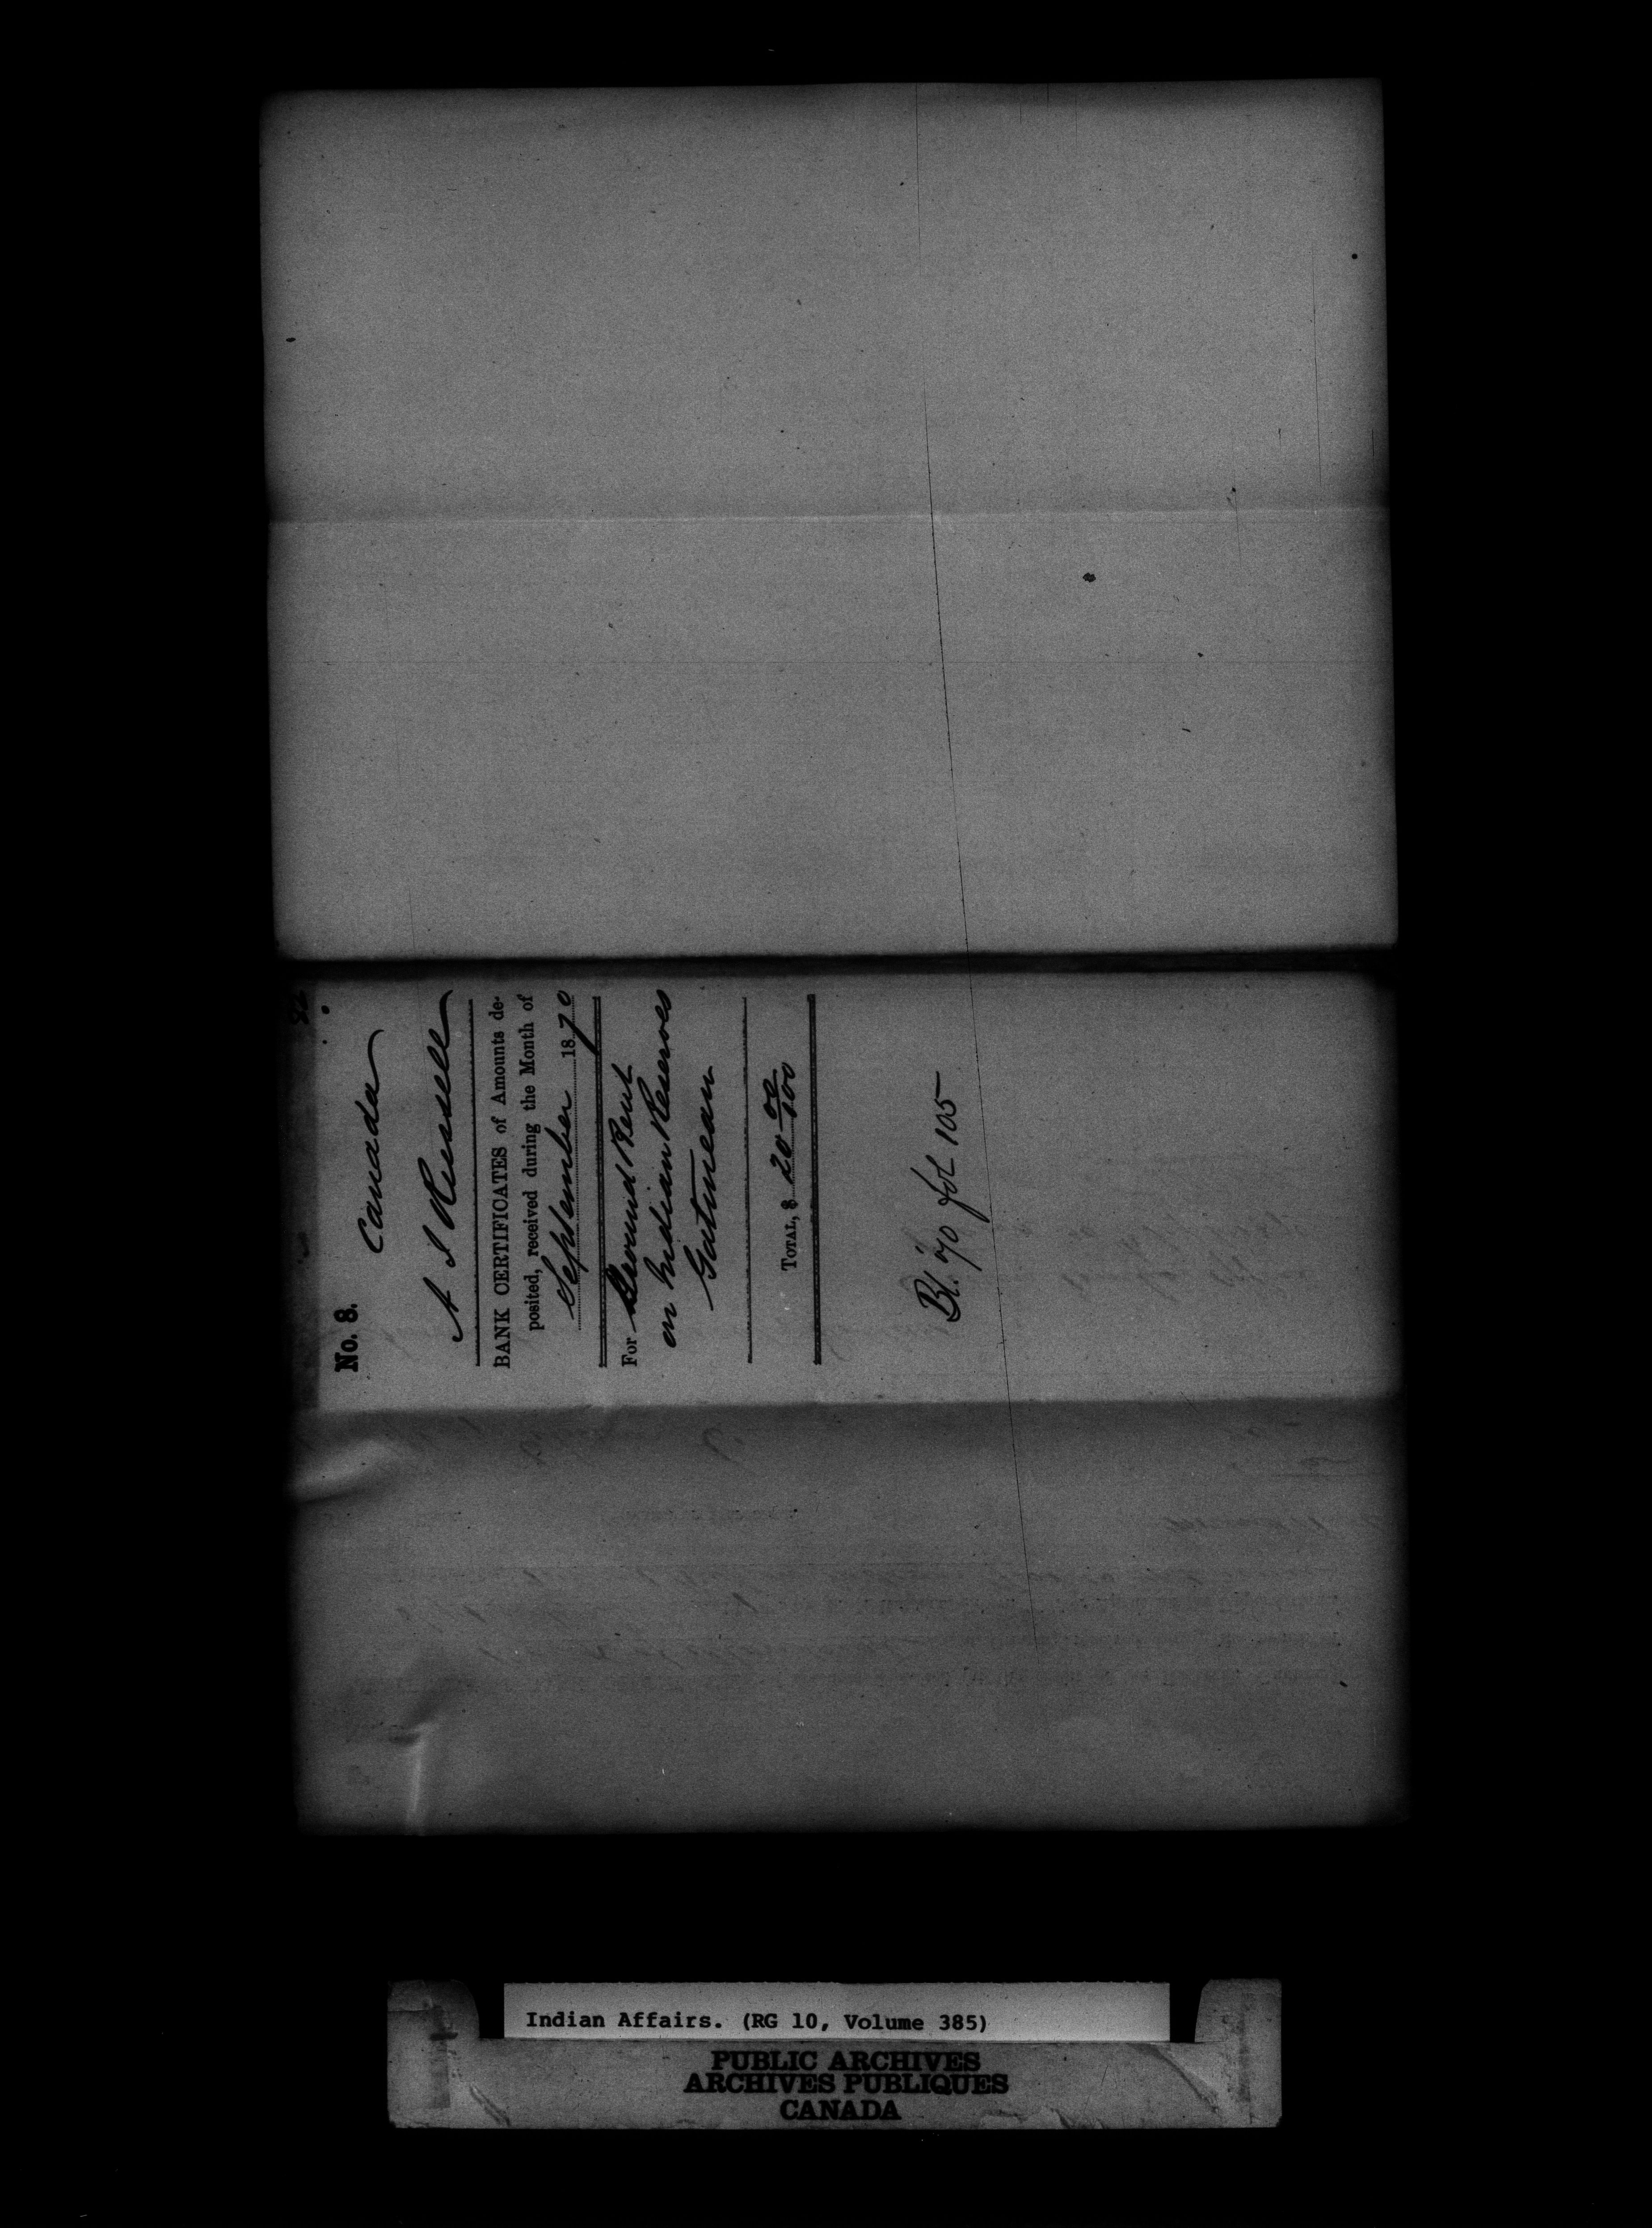 No. 8.
Canada
A J Russell
BANK CERTIFICATES of Amounts de-
posited, received during the Month of
September 1870
For Ground Rent
on Indian Reserves
Gatineau
TOTAL, $ 20 00/100
Bl. 70 fol 105
Indian Affairs. (RG 10, Volume 385)
PUBLIC ARCHIVES
ARCHIVES PUBLIQUES
CANADA